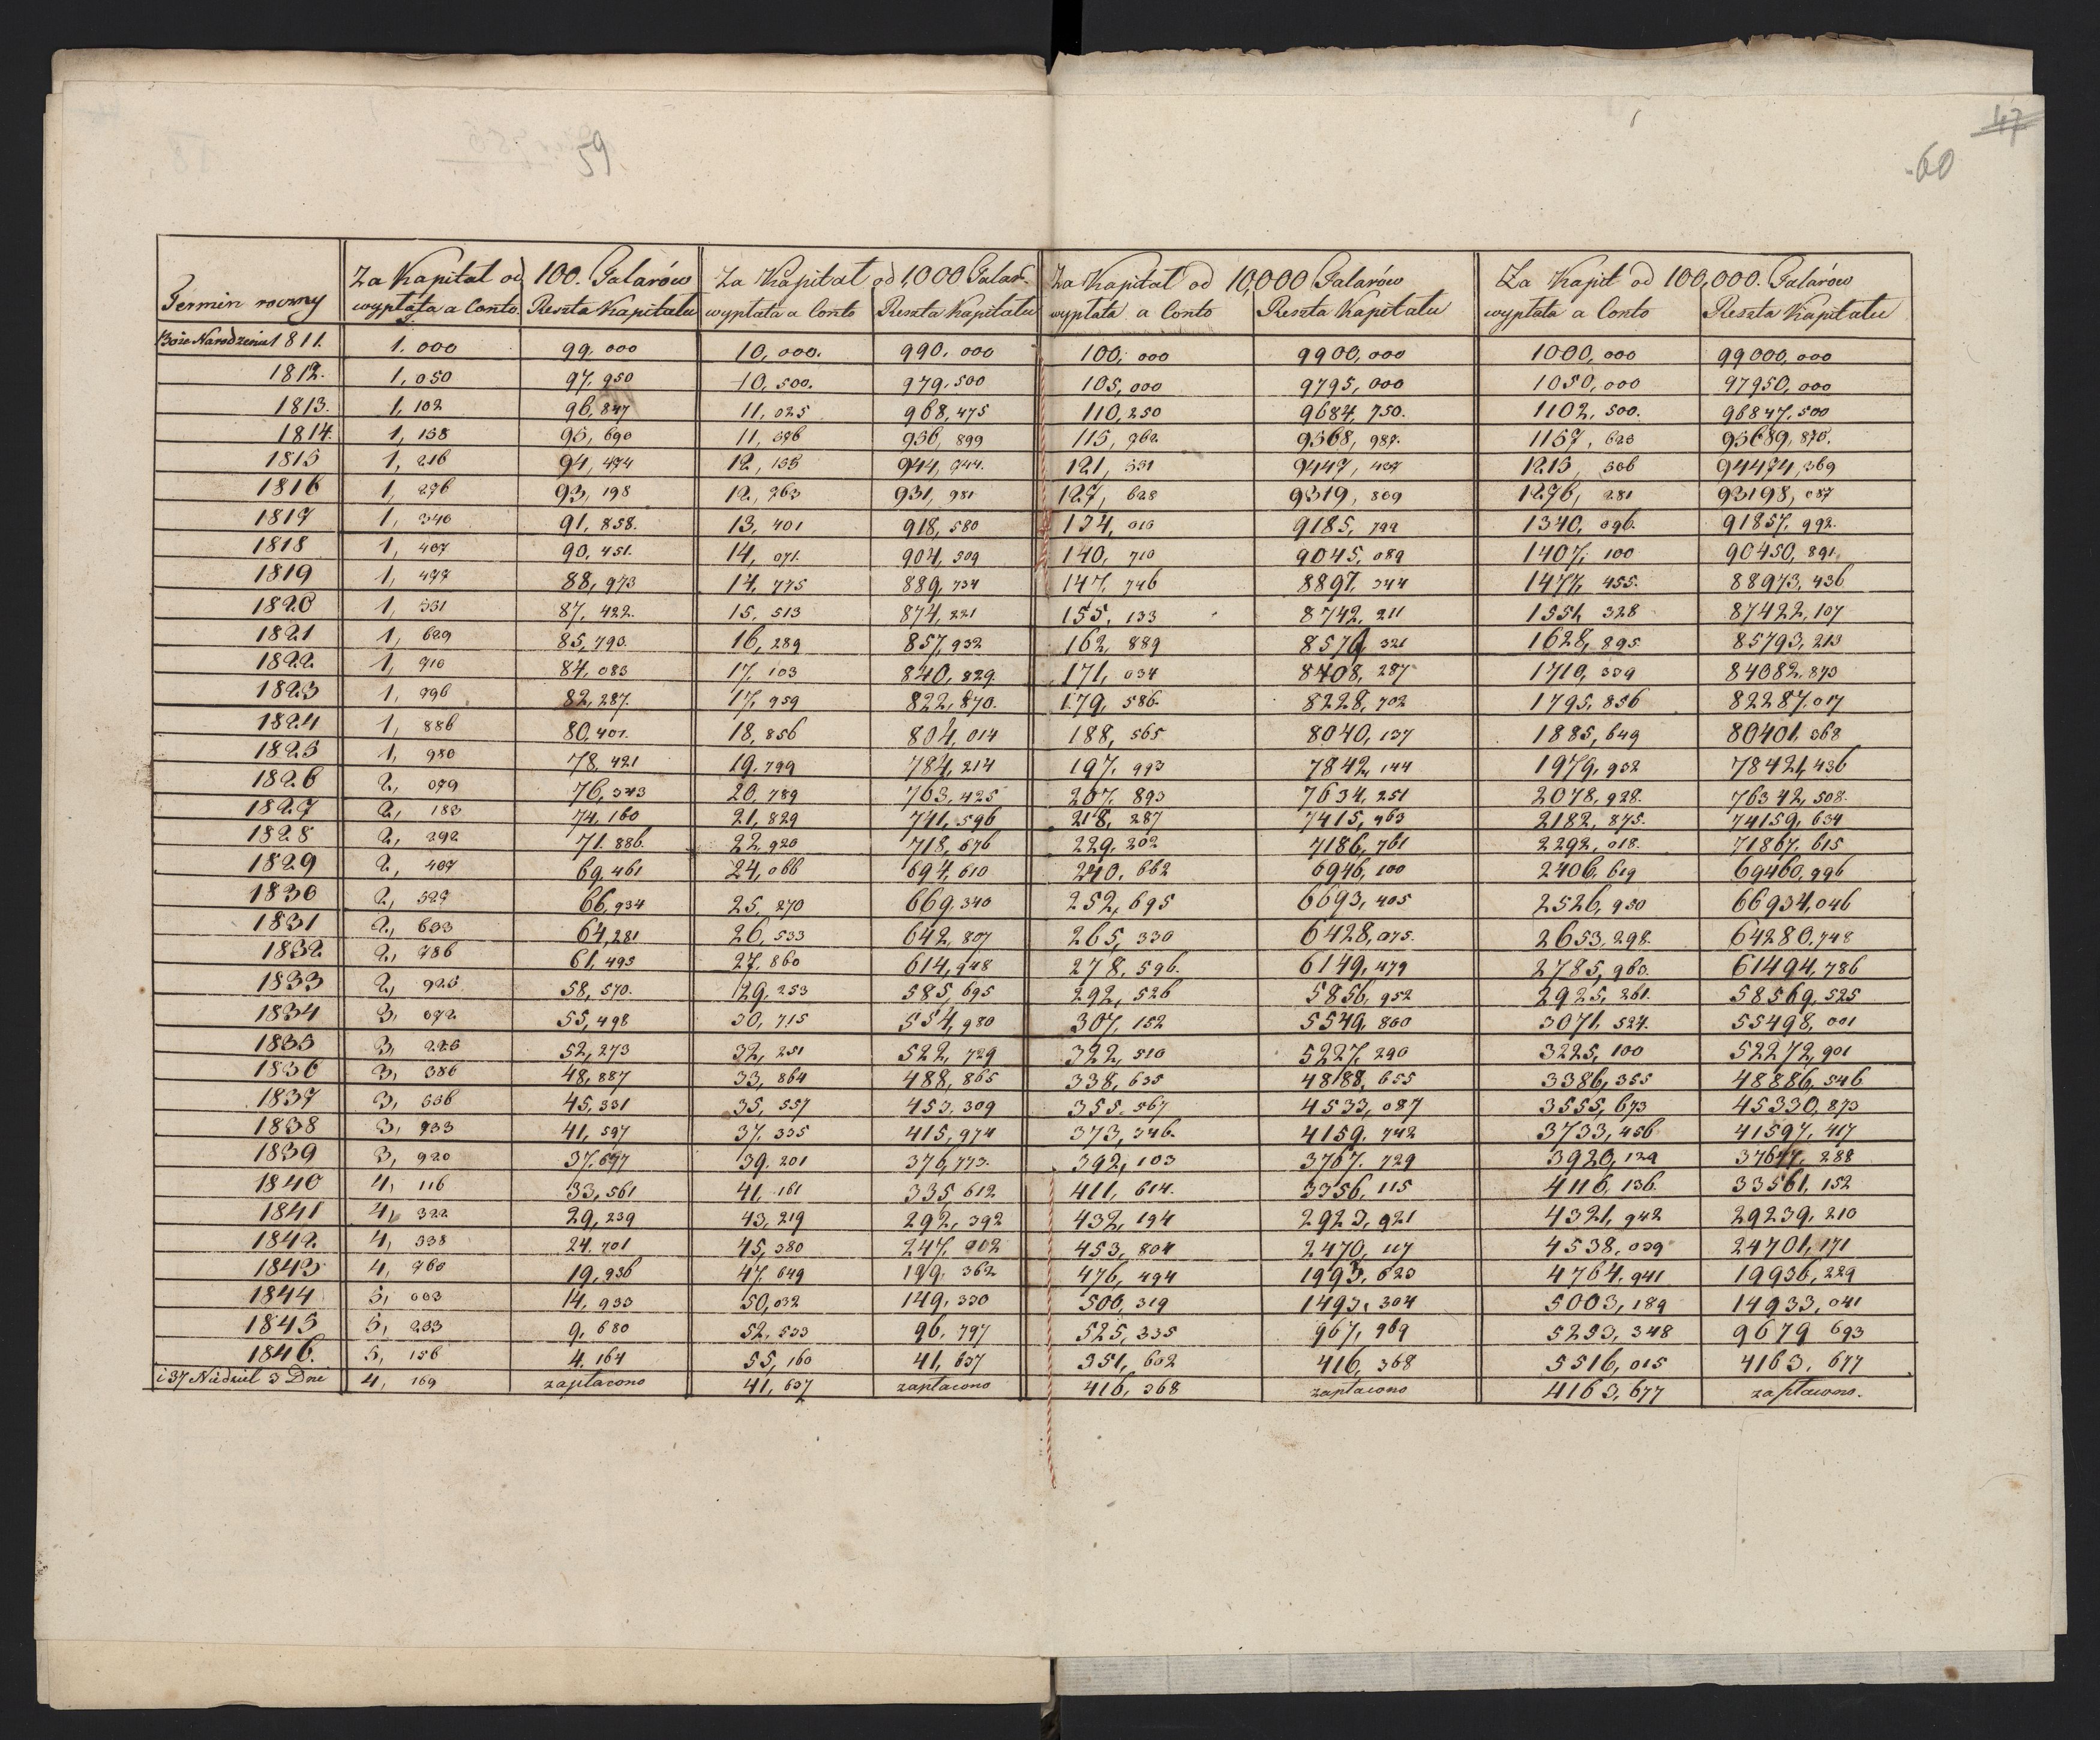 59
47
60
Termin roczny | Za Kapitał od 100. Talarów | Za Kapitał od 1,000 Talar. | Za Kapitał od 10,000 Talarów | Za Kapit od 100,000. Talarów
wypłata a Conto. | Reszta Kapitału | wypłata a Conto | Reszta Kapitału | wypłata a Conto | Reszta Kapitału | wypłata a Conto | Reszta Kapitału
Boże Narodzenie 1811. | 1.000 | 99.000 | 10,000. | 990.000 | 100,000 | 9900,000 | 1000,000 | 99000,000
1812. | 1,050 | 97,950 | 10,500. | 979,500 | 105,000 | 9795,000 | 1050,000 | 97950,000
1813. | 1,102 | 96,847 | 11,025 | 968,475 | 110,250 | 9684,750. | 1102,500. | 96847,500
1814. | 1,158 | 95,690 | 11,576 | 956,899 | 115,762 | 9568,987. | 1157,625 | 95689,875.
1815 | 1,216 | 94,474 | 12,155 | 944,744. | 121,551 | 9447,437 | 1215,506 | 94474,369
1816 | 1,276 | 93,198 | 12,763 | 931,981 | 127,628 | 9319,809 | 1276,281 | 93198,087
1817 | 1,340 | 91,858. | 13,401 | 918,580 | 134,010 | 9185,799 | 1340,096. | 91857,992.
1818 | 1,407 | 90,451. | 14,071. | 904,509 | 140,710 | 9045,089 | 1407,100 | 90450,891
1819 | 1,477 | 88,973 | 14,775 | 889,734 | 147,746 | 8897,344 | 1477,455. | 88973,436
1820 | 1,551 | 87,422. | 15,513 | 874,221 | 155,133 | 8742,211 | 1551,328 | 87422,107
1821 | 1,629 | 85,793. | 16,289 | 857,932 | 162,889 | 8579,321 | 1628,895 | 85793,213
1822 | 1,710 | 84,083 | 17,103 | 840,829 | 171,034 | 8408,287 | 1710,339 | 84082,873
1823 | 1,796 | 82,287. | 17,959 | 822,870. | 179,586. | 8228,702 | 1795,856 | 82287,017
1824 | 1,886 | 80,401. | 18,856 | 804,014 | 188,565 | 8040,137 | 1885,649 | 80401,368
1825 | 1,980 | 78,421 | 19,799 | 784,214 | 197,993 | 7842,144 | 1979,932 | 78421,436
1826 | 2,079 | 76,343 | 20,789 | 763,425 | 207,893 | 7634,251 | 2078,928. | 76342,508.
1827 | 2,183 | 74,160 | 21,829 | 741,596 | 218,287 | 7415,963 | 2182,875. | 74159,634
1828 | 2,292 | 71.886. | 22,920 | 718,676 | 229,202 | 7186,761 | 2292,018. | 71867,615
1829 | 2,407 | 69,461 | 24,066 | 694,610 | 240,662 | 6946,100 | 2406,619 | 69460,996
1830 | 2,527 | 66,934 | 25,270 | 669,340 | 252,695 | 6693,405 | 2526,950 | 66934,046
1831 | 2,653 | 64,281 | 26,533 | 642,807 | 265,330 | 6428,075. | 2653,298. | 64280,748
1832 | 2,786 | 61,495 | 27,860 | 614,948 | 278,596. | 6149,479 | 2785,963. | 61494,786
1833 | 2,925 | 58,570. | 29,253 | 585,695 | 292,526 | 5856,952 | 2925,261. | 58569,525
1834 | 3,072 | 55,498 | 30,715 | 554,980 | 307,152 | 5549,800 | 3071,524. | 55498,001
1835 | 3,225 | 52,273 | 32,251 | 522,729 | 322,510 | 5227,290 | 3225,100 | 52272,901
1836 | 3,386 | 48,887 | 33,864 | 488,865 | 338,635 | 48188,655 | 3386,355 | 48886,546
1837 | 3,556 | 45,331 | 35,557 | 453,309 | 355,567 | 4533,087 | 3555,673 | 45330,873
1838 | 3,733 | 41,597 | 37,335 | 415,974 | 373,346. | 4159,742 | 3733,456 | 41597,417
1839 | 3,920 | 37,677 | 39,201 | 376,773. | 392,103 | 3767,729 | 3920,129 | 37677,288
1840 | 4,116 | 33,561 | 41,161 | 335,612 | 411,614. | 3356,115 | 4116,136. | 33561,152
1841 | 4,322 | 29,239 | 43,219 | 292,392 | 432,194 | 2923,921 | 4321,942 | 29239,210
1842 | 4,538 | 24,701 | 45,380 | 247,002 | 453,804 | 2470,117 | 4538,039 | 24701,171
1843 | 4,760 | 19,936 | 47,649 | 199,362 | 476,494 | 1993,623 | 4764,941 | 19936,229
1844 | 5,003 | 14,933 | 50,032 | 149,330 | 500,319 | 1493,304 | 5003,189 | 14933,041
1845 | 5,253 | 9,680 | 52,533 | 96,797 | 525,335 | 967,969 | 5253,348 | 9679,693
1846. | 5,156 | 4,164 | 55,160 | 41,637 | 551,602 | 416,368 | 5516,015 | 4163,677
i 37 Niedziel 3 Dni | 4,169 | zapłacono | 41,637 | zapłacono | 416,368 | zapłacono | 4163,677 | zapłacono.